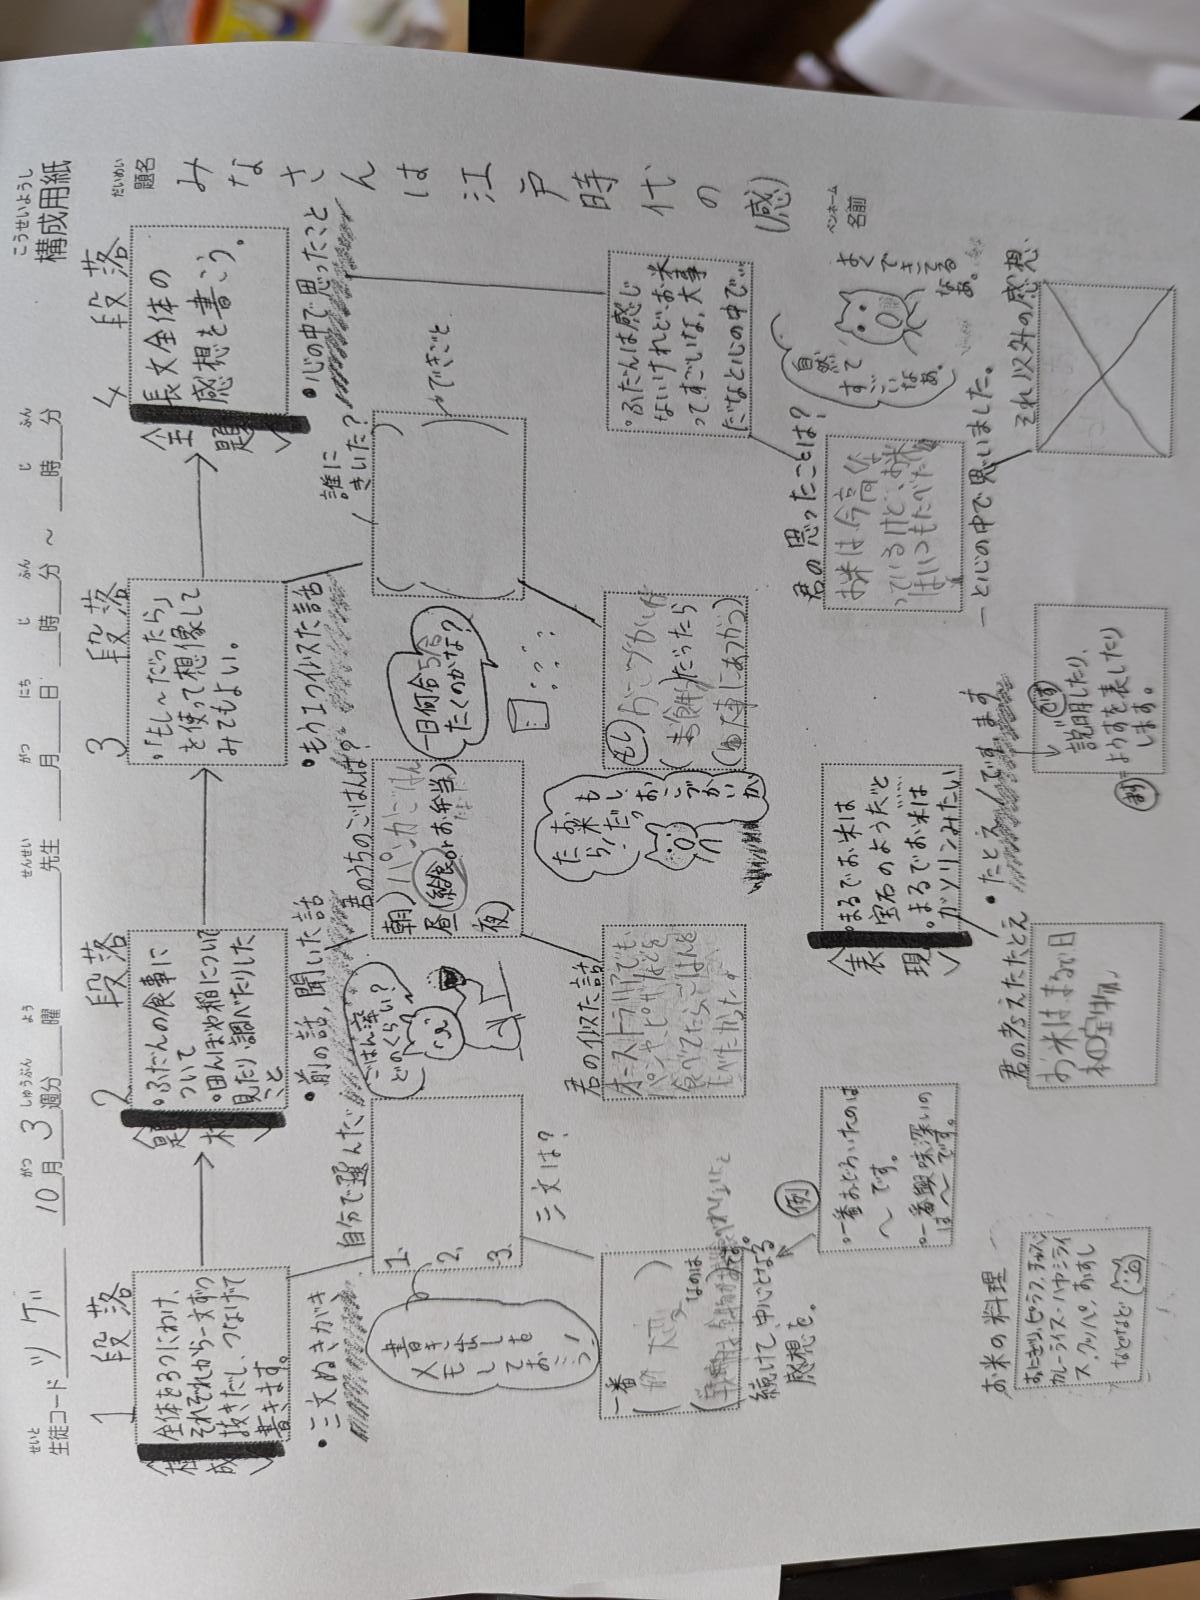 こうせいようし
構成用紙
せいと
生徒コード ツゲ
がつ しゅうぶん よう せんせい
10月3週分 曜 先生
がつ にち じ ふん じ ふん
月 日 時 分 ～ 時 分
だいめい
題名
みなさんは江戸時代の(感)
ペンネーム
名前
1段落
〈構成〉
全体を3つにわけ、
それぞれから一文ずつ
抜きだし、つなげて
書きます。
・三文ぬきがき
自分で選んだ
三文は？
1.
2.
3.
書き出しを
メモして
おこう！
一番
なのは
です。
続けて、中心となる
感想を。
例
・一番おどろいたのは
～です。
・一番興味深いの
は～です。
お米の料理
おにぎり、ピラフ、チャーハン
カレーライス・ハヤシライ
ス、クッパ、おすし
などなど
2段落
〈題材〉
・ふだんの食事に
ついて
・田んぼや稲について
見たり、調べたりした
こと
・前の話、聞いた話
君のうちのごはんは？
朝）パンかごはん
昼（給食orお弁当）
夜）
ごはん率
どのくらい？
君の似た話
オーストラリアでも、
パンやピザなどを
食べてたらごはんを
たべたかった。
〈表現〉
・まるでお米は
宝石のようだ
・まるでお米は
ガソリンみたい
・たとえ
君の考えたたとえ
お米はまるで日
本の宝物。
説明したり、
ようすを表したり
します。
3段落
・「もし～だったら」
を使って想像して
みてもよい。
・もう1つ似た話
誰に
きいた？
できごと
一日何合ら
たくのかな？
もし おこづかいが
(お餅)だったら
もし
お米
だったら！
おこづかいが
4段落
〈主題〉
長文全体の
感想を書こう。
・心の中で思ったこと
・ふだんは感じ
ないけれど、お米
ってすごいな、大事
だなと心の中で…
君の思ったことは？
お米は今高くな
っているけど、お米
はいつもたべたい
－と心の中で思いました。
自然って
すごい
なあ。
よくできてる
なあ。
それ以外の感想、